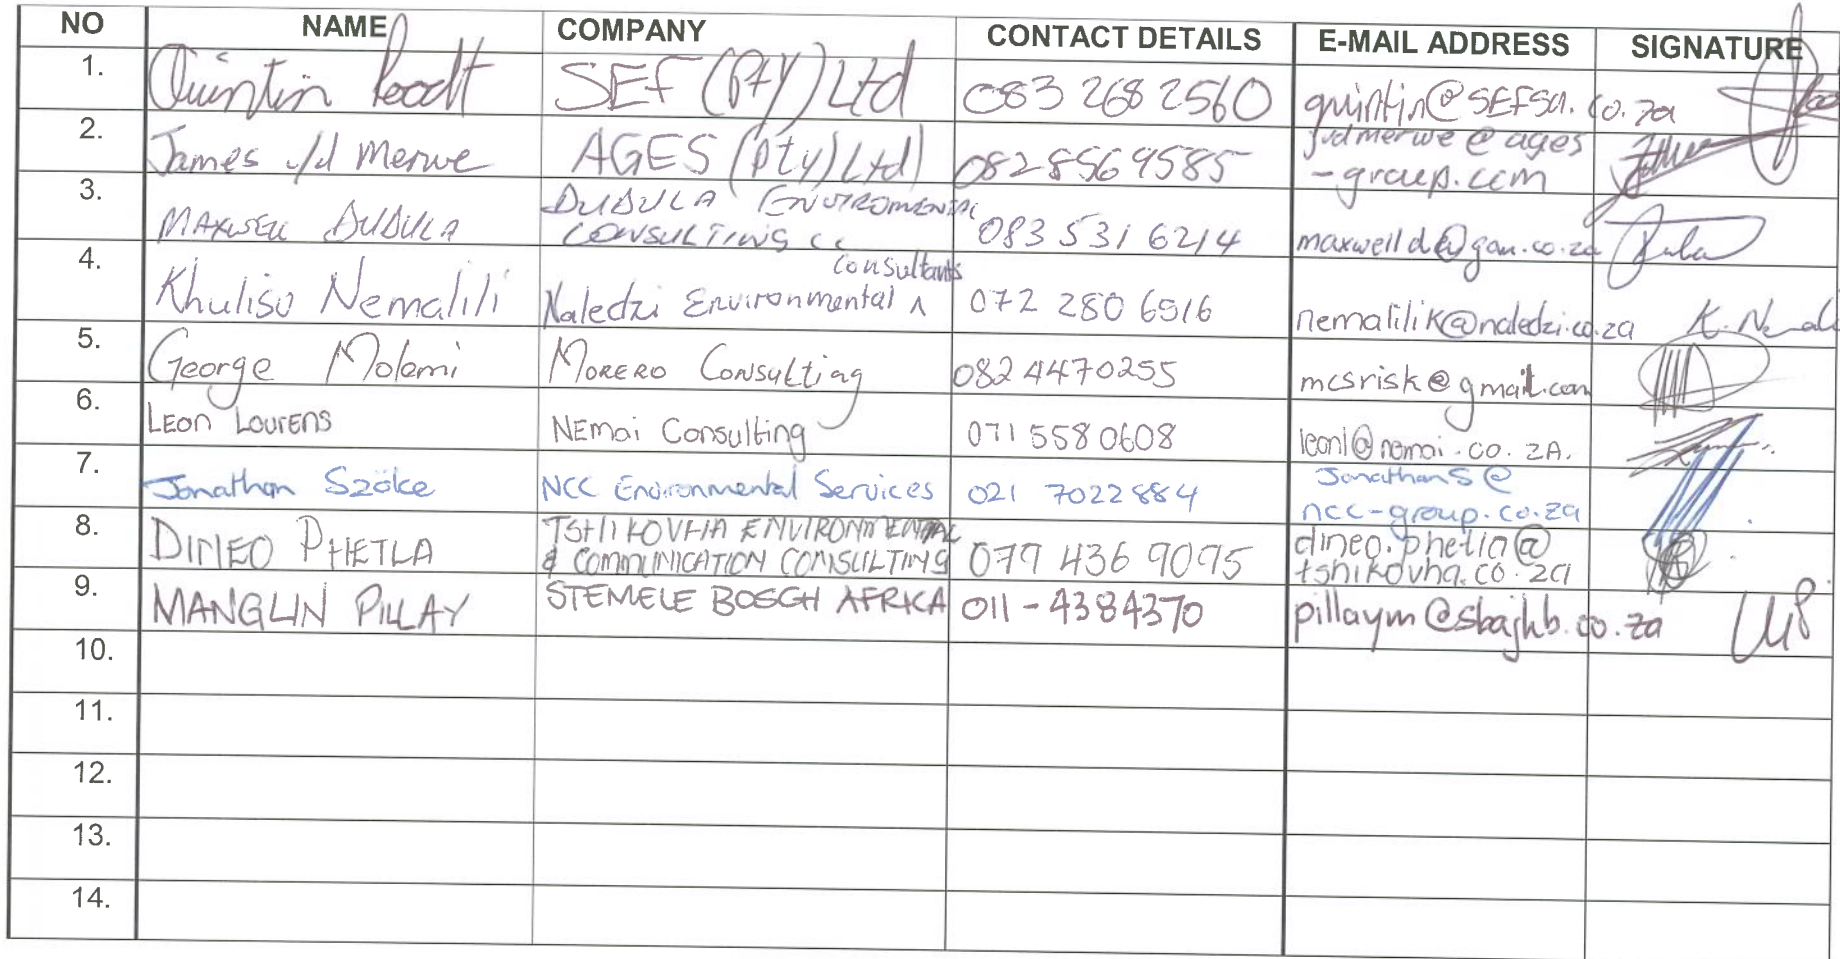 NO NAME COMPANY CONTACT DETAILS E-MAIL ADDRESS SIGNATURE
1. Quintin Roodt SEF (Pty) Ltd 083 268 2560 quintin@SEFSA.co.za
2. James v/d Merwe AGES (Pty) Ltd 0828569585 jvdmerwe@ages
-group.com
3. MAXWELL DUBULA DUBULA ENVIROMENTAL
CONSULTING CC 083 531 6214 maxwelld@gau.co.za
4. Khuliso Nemalili Naledzi Environmental ^ 072 280 6516 nemalilik@naledzi.co.za K. Nemali
Consultants
5. George Molemi MORERO CONSULTING 082 4470255 mcsrisk@gmail.com
6. LEON LOURENS NEMai Consulting 071 558 0608 leonl@nemai.co.ZA.
7. Jonathan Szöke NCC Environmental Services 021 7022884 JonathanS@
ncc-group.co.za
8. DINEO PHETLA TSHIKOVHA ENVIRONMENTAL
& COMMUNICATION CONSULTING 079 436 9095 dineo.phetla@
tshikovha.co.za
9. MANGLIN PILLAY STEMELE BOSCH AFRICA 011-4384370 pillaym@sbajhb.co.za
10.
11.
12.
13.
14.